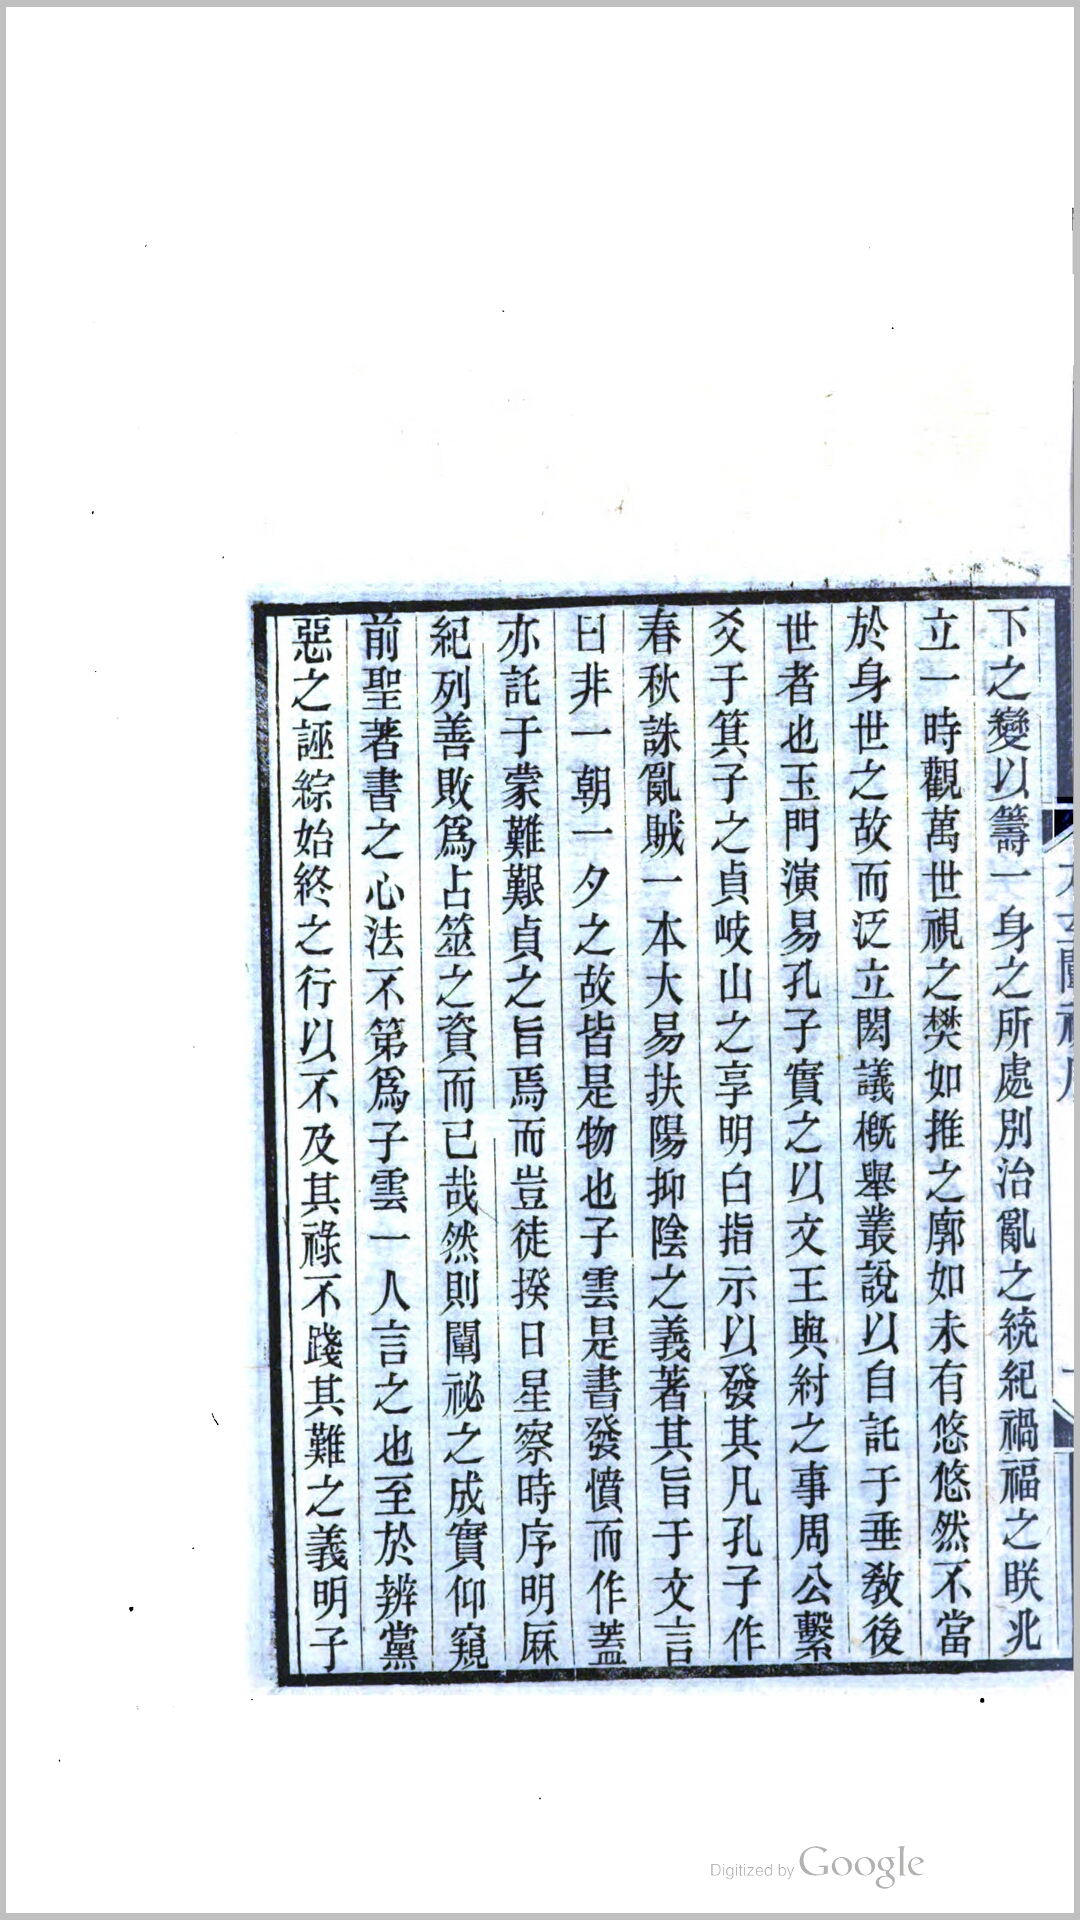 下之變以籌一身之所處別治亂之統紀禍福之眹兆
立一時觀萬世視之樊如推之廓如未有悠悠然不當
於身世之故而泛立閎議槪舉叢說以自託于垂教後
世者也玉門演易孔子實之以文王與紂之事周公繫
爻于箕子之貞岐山之享明白指示以發其凡孔子作
春秋誅亂賊一本大易扶陽抑陰之義著其旨于文言
曰非一朝一夕之故皆是物也子雲是書發憤而作蓋
亦託于蒙難艱貞之旨焉而豈徒揆日星察時序明厤
紀列善敗爲占筮之資而已哉然則闡祕之成實仰窺
前聖著書之心法不第爲子雲一人言之也至於辨黨
惡之誣綜始終之行以不及其祿不踐其難之義明子
Digitized by Google